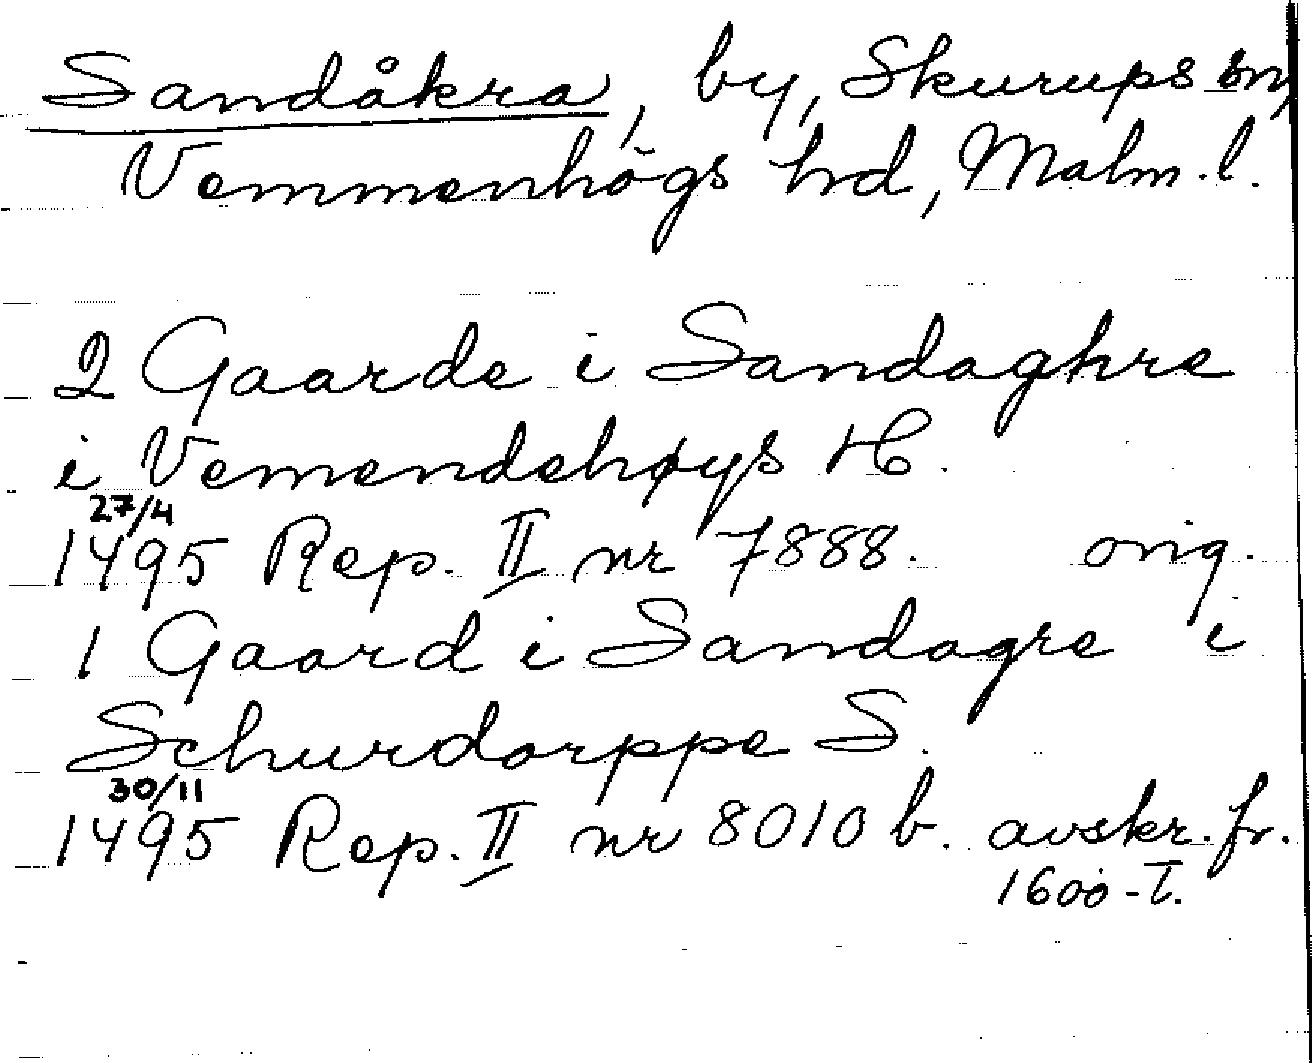 Sandåkra, by, Skurups sn,
Vemmenhögs hd, Malm. l.
2 Gaarde i Sandaghre
i Vemendehøys H.
27/4
1495 Rep. II nr 7888. orig.
1 Gaard i Sandagre i
Schurdorppe S.
30/11
1495 Rep. II nr 8010 b. avskr. fr.
1600-T.